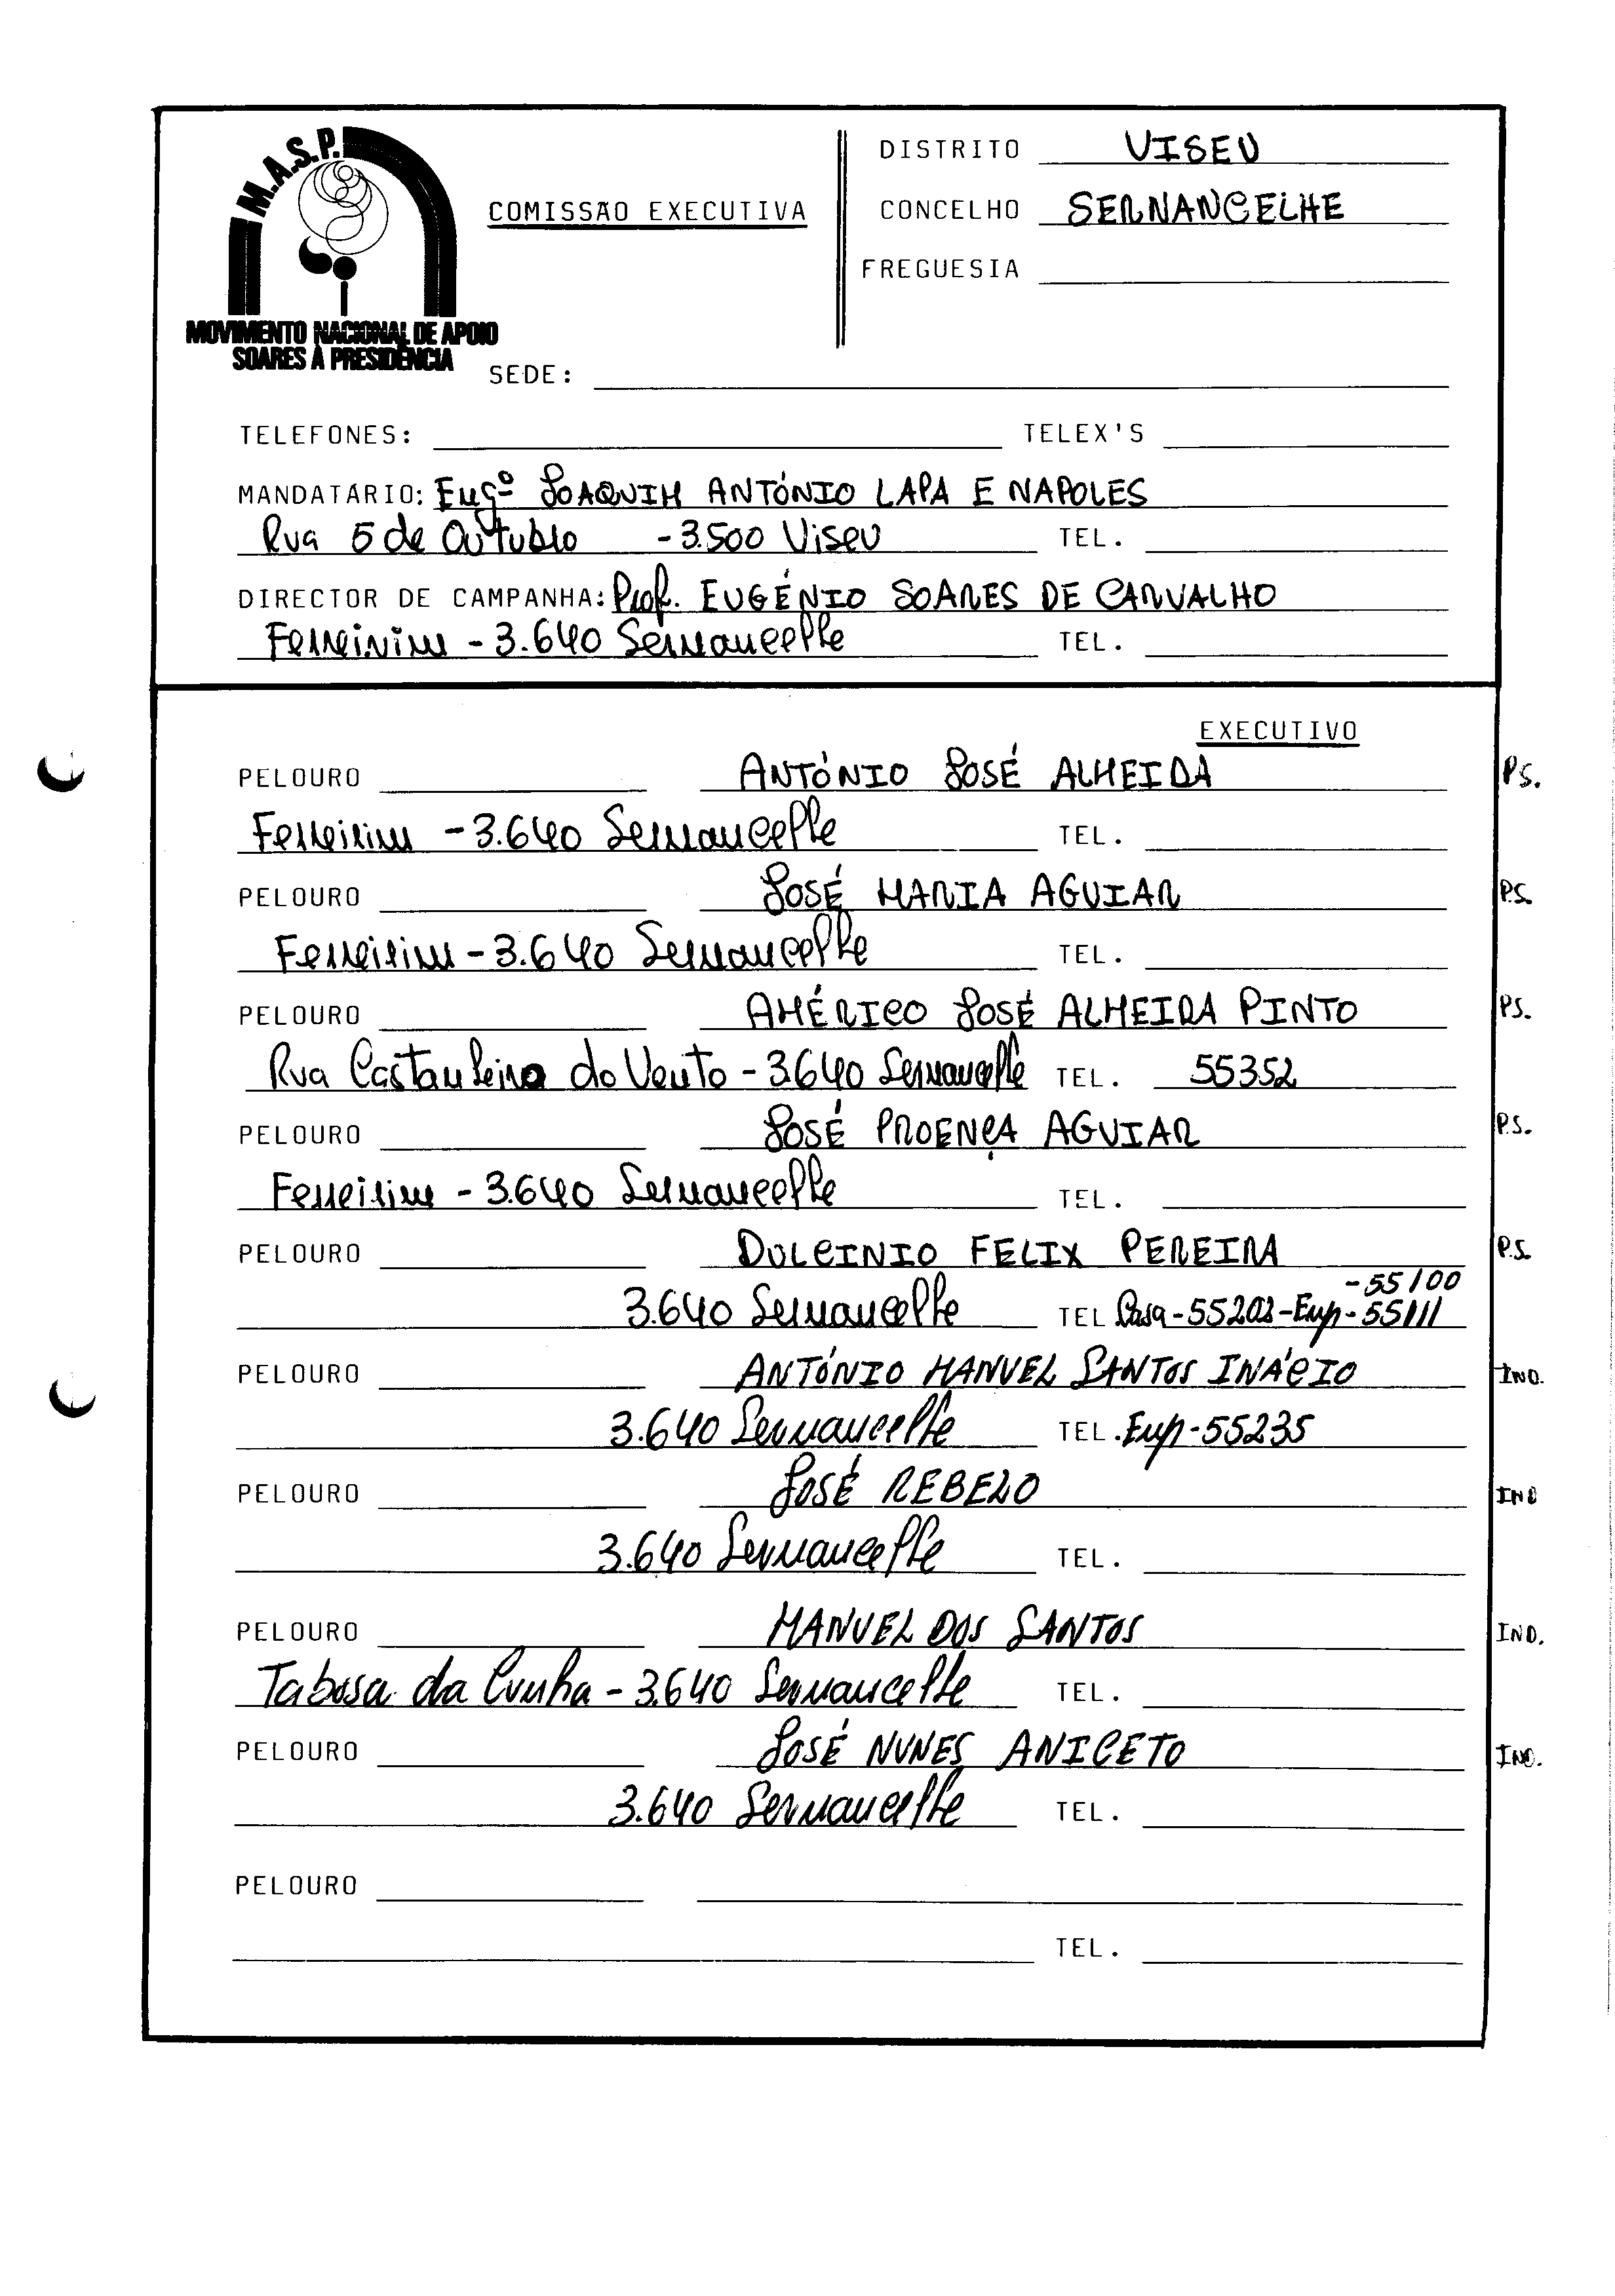 M.A.S.P.
MOVIMENTO NACIONAL DE APOIO
SOARES À PRESIDÊNCIA
COMISSÃO EXECUTIVA
DISTRITO VISEU
CONCELHO SERNANCELHE
FREGUESIA
SEDE:
TELEFONES: TELEX'S
MANDATÁRIO: Engº JOAQUIM ANTÓNIO LAPA E NAPOLES
Rua 5 de Outubro - 3.500 Viseu TEL.
DIRECTOR DE CAMPANHA: Prof. EUGÉNIO SOARES DE CARVALHO
Ferreirim - 3.640 Sernancelhe TEL.
EXECUTIVO
PELOURO ANTÓNIO JOSÉ ALMEIDA P.S.
Ferreirim - 3.640 Sernancelhe TEL.
PELOURO JOSÉ MARIA AGUIAR P.S.
Ferreirim - 3.640 Sernancelhe TEL.
PELOURO AMÉRICO JOSÉ ALMEIDA PINTO P.S.
Rua Castanheiro do Vento - 3640 Sernancelhe TEL. 55352
PELOURO JOSÉ PROENÇA AGUIAR P.S.
Ferreirim - 3.640 Sernancelhe TEL.
PELOURO DULCINIO FELIX PEREIRA P.S.
-55100
3.640 Sernancelhe TEL Casa-55202-Emp-55111
PELOURO ANTÓNIO MANUEL SANTOS INÁCIO IND.
3.640 Sernancelhe TEL. Emp-55235
PELOURO JOSÉ REBELO IND
3.640 Sernancelhe TEL.
PELOURO MANUEL DOS SANTOS IND.
Tabosa da Cunha - 3.640 Sernancelhe TEL.
PELOURO JOSÉ NUNES ANICETO IND.
3.640 Sernancelhe TEL.
PELOURO
TEL.